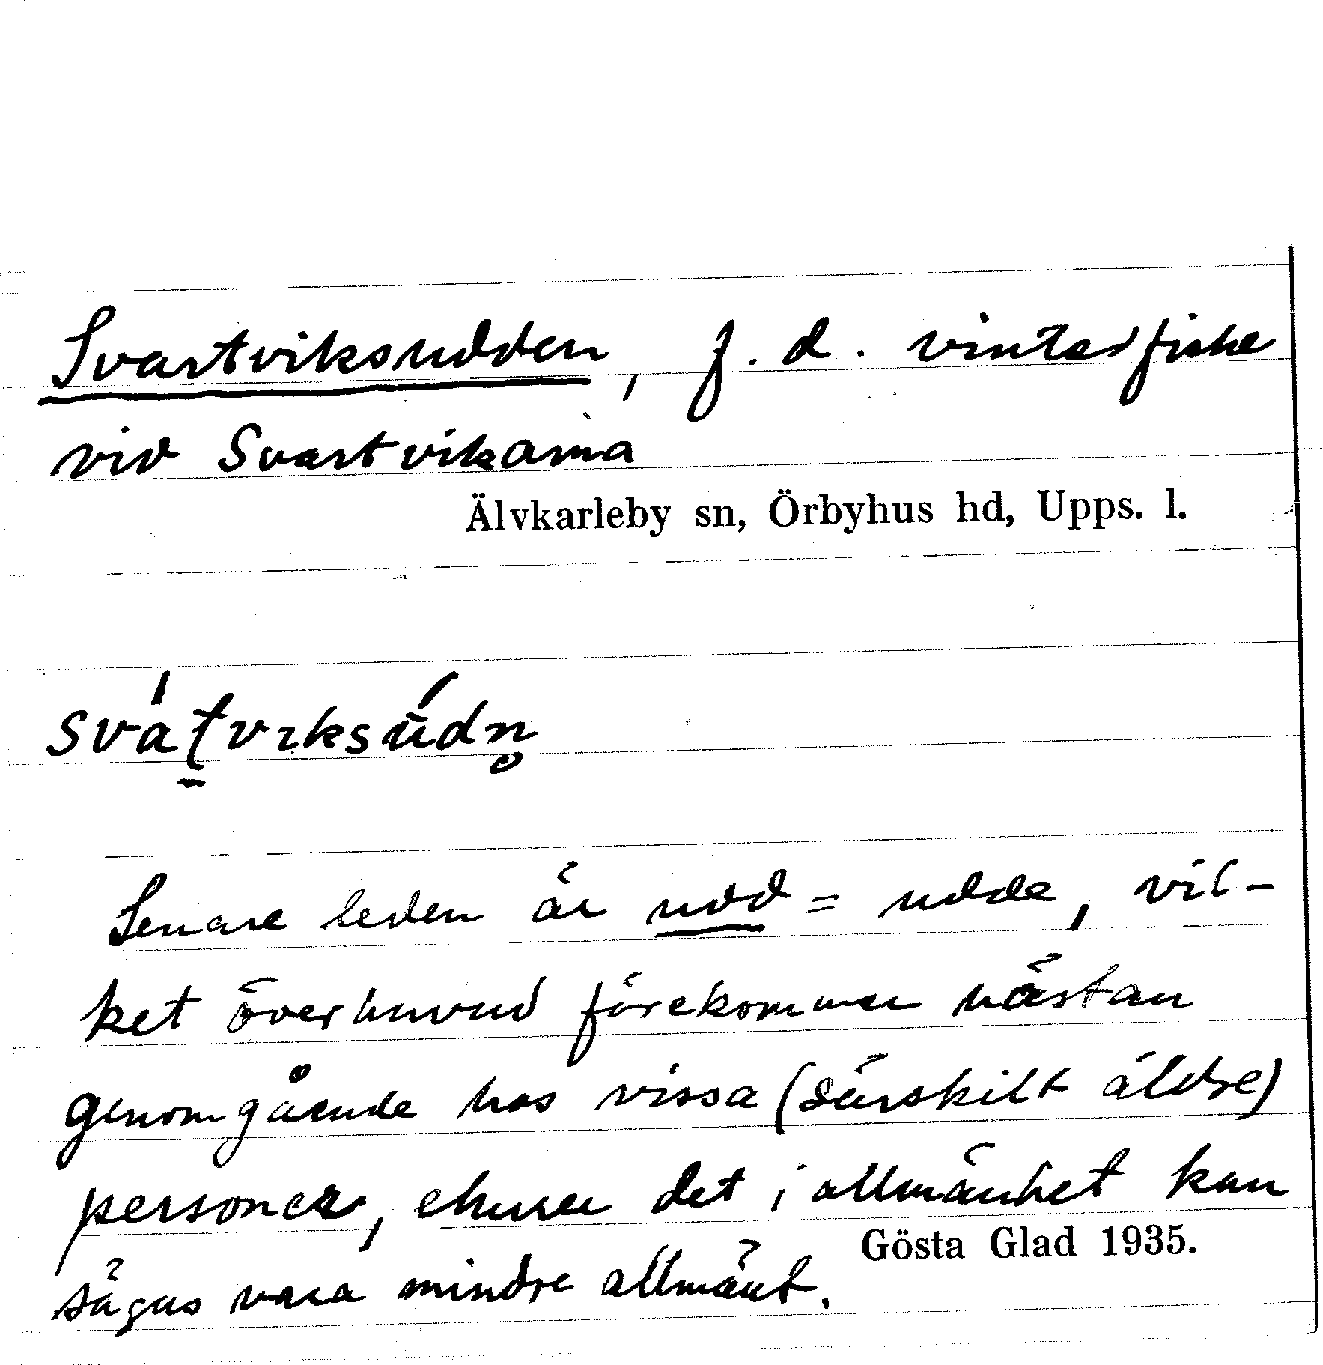 Svartviksudden, f. d. vinterfiske
vid Svartvikarna
Älvkarleby sn, Örbyhus hd, Upps. l.
sváṯvɪksúdn̥
Senare leden är udd = udde, vil-
ket överhuvud förekommer nästan
genomgående hos vissa (särskilt äldre)
personer, ehuru det i allmänhet kan
Gösta Glad 1935.
sägas vara mindre allmänt.